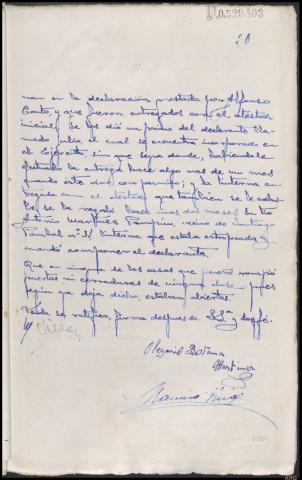 V.0.529.403
20
nan en la declaracion prestada por Alfonso
Couto, y que fueron entregados con el atestado
inicial, se las dió un primo del declarante lla-
mado Julio, el cual se encuentra incorporado en
el Ejército, sin que sepa donde, habiendole
efectuado la entrega hace algo mas de un mes
cuando éste vino con permiso; y la linterna en-
tregada con el atestado que tambien se le exhi-
be se la regaló hace unos dos meses su tio
Antonio Martinez, vecino de Santiago
nº 31, linterna que estaba estropeada y
mandó componer el declarante.
Que en ninguna de las casas que rompió
puertas ni cerraduras de ninguna clase, pues
según que deja dicho, estaban abiertas.
Leida se ratifica, firma despues de SSª y doy fé.
Martinez
Ramiro